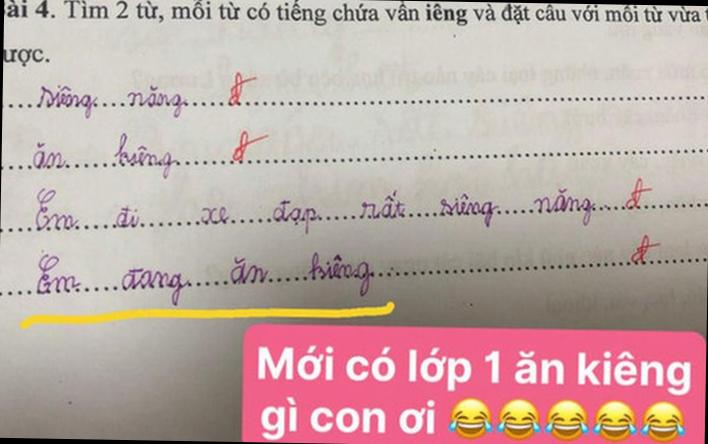 ài 4. Tìm 2 từ, mỗi từ có tiếng chứa vần iêng và đặt câu với mỗi từ vừa t
ược.
siêng năng đ
ăn kiêng đ
Em đi xe đạp rất siêng năng đ
Em đang ăn kiêng đ
Mới có lớp 1 ăn kiêng
gì con ơi 😂😂😂😂😂